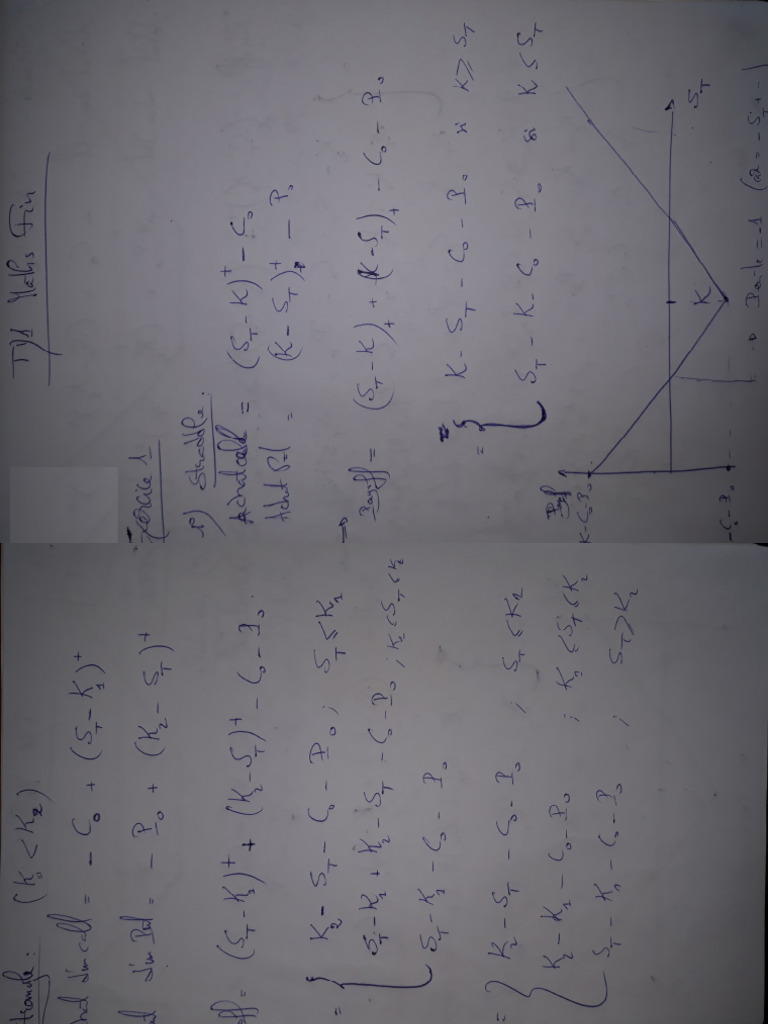 TD1 Maths Fin
Exercice 1
1°) Straddle:
Achat call = (S_T - K)^+ - C_0
Achat Put = (K - S_T)^+_+ - P_0
→ Payoff = (S_T - K)_+ + (K - S_T)_+ - C_0 - P_0
= { K - S_T - C_0 - P_0 si K ≥ S_T
S_T - K - C_0 - P_0 si K ≤ S_T
K - C_0 - P_0
K
S_T
- C_0 - P_0
→ Pente = -1 (car = - S_T + -
(K_1 < K_2)
d'un call = - C_0 + (S_T - K_1)^+
d'un Put = - P_0 + (K_2 - S_T)^+
= (S_T - K_1)^+ + (K_2 - S_T)^+ - C_0 - P_0.
= { K_2 - S_T - C_0 - P_0 ; S_T ≤ K_1
S_T - K_1 + K_2 - S_T - C_0 - P_0 ; K_1 ≤ S_T ≤ K_2
S_T - K_1 - C_0 - P_0
= { K_2 - S_T - C_0 - P_0 ; S_T ≤ K_1
K_2 - K_1 - C_0 - P_0 ; K_1 ≤ S_T ≤ K_2
S_T - K_1 - C_0 - P_0 ; S_T > K_2